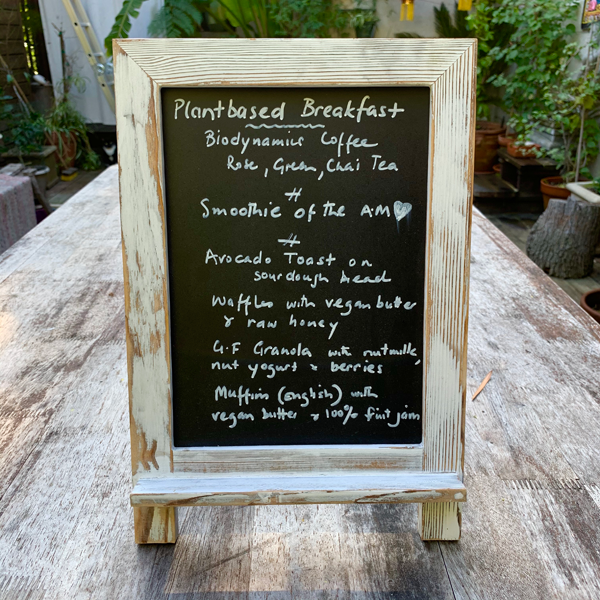 Plantbased Breakfast
Biodynamics Coffee
Rose, Green, Chai Tea
#
Smoothie of the A.M
#
Avocado Toast on
sourdough head
Waffles with vegan butter
& raw honey
G.F Granola with nutmilk,
nut yogurt & berries
Muffins (english) with
vegan butter & 100% fruit jam